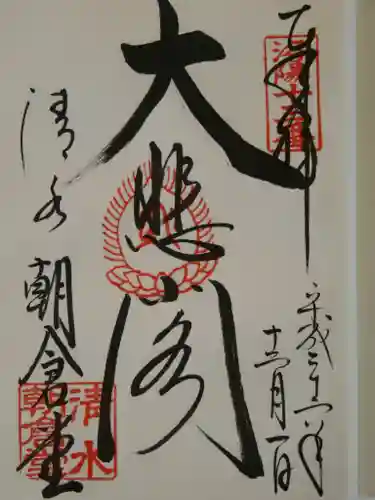 奉拝
平成二十一年
十二月一日
大悲閣
清水
朝倉堂
清水
朝倉堂